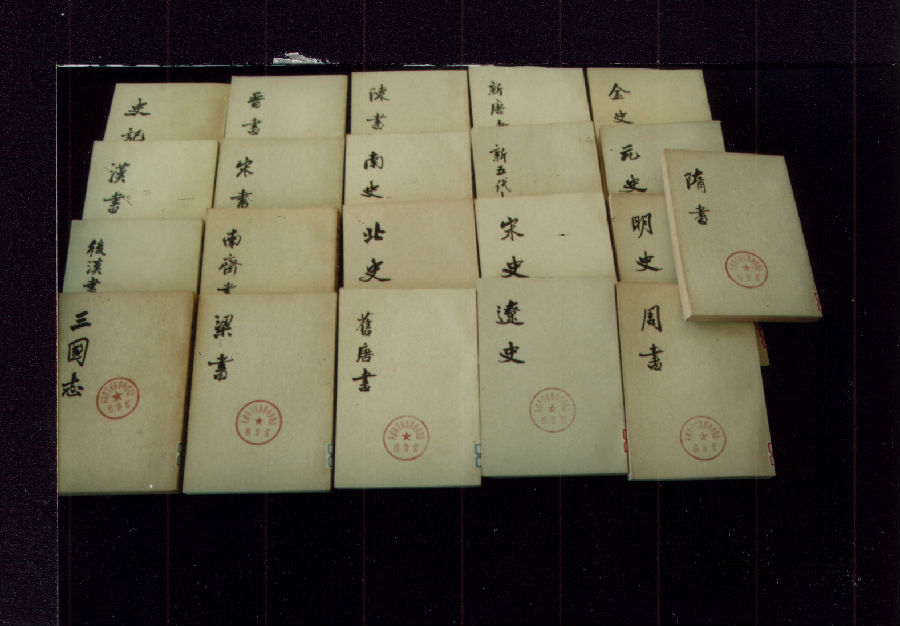 史記
漢書
後漢書
三國志
晋書
宋書
南齊書
梁書
陳書
南史
北史
舊唐書
新唐書
新五代
宋史
遼史
金史
元史
明史
周書
隋書